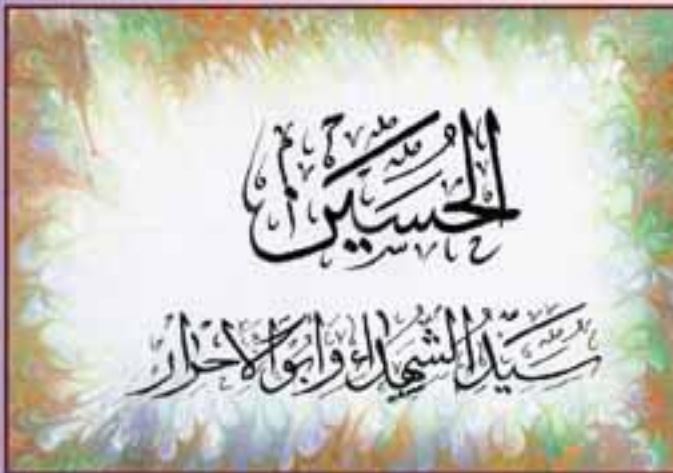 الحسين
سيد الشهداء وابو الاحرار